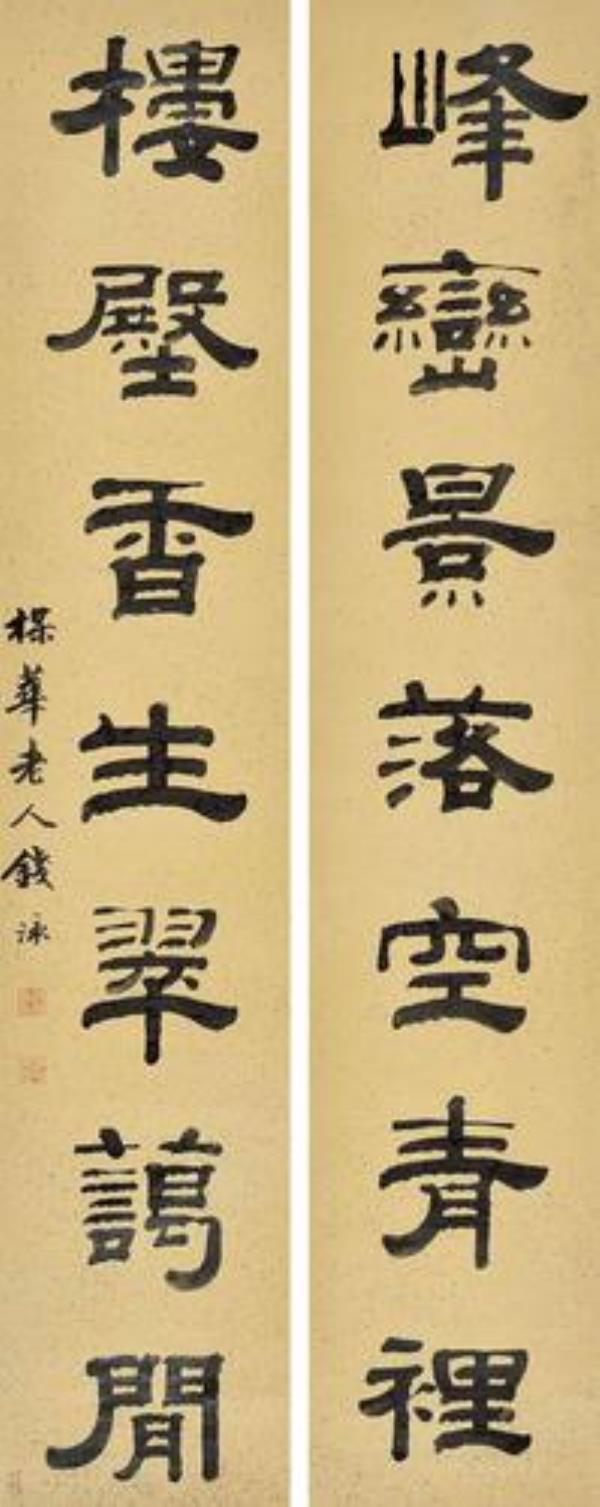 峰巒景落空青裡
樓壂香生翠藹閒
楳華老人錢泳